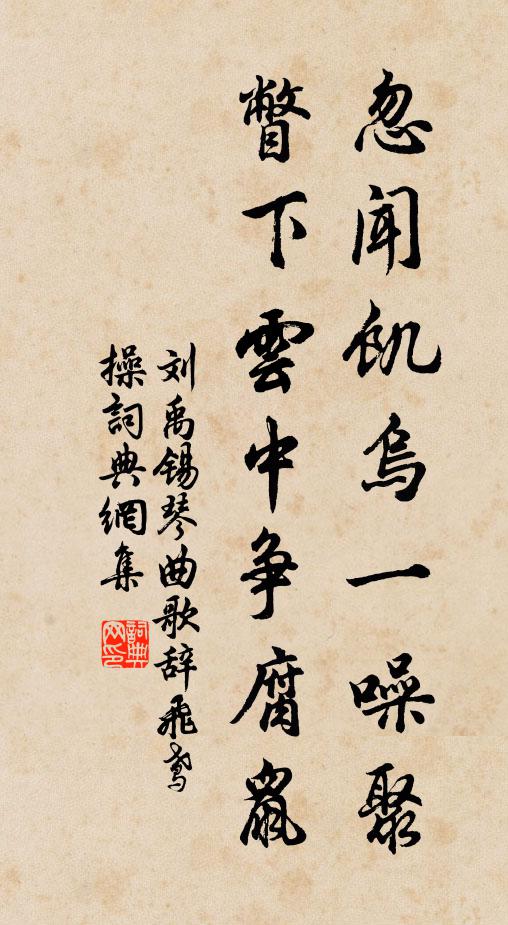 忽闻飢烏一噪聚
瞥下雲中争腐鼠
刘禹锡琴曲歌辞飛鸢
操詞典網集
詞典网印